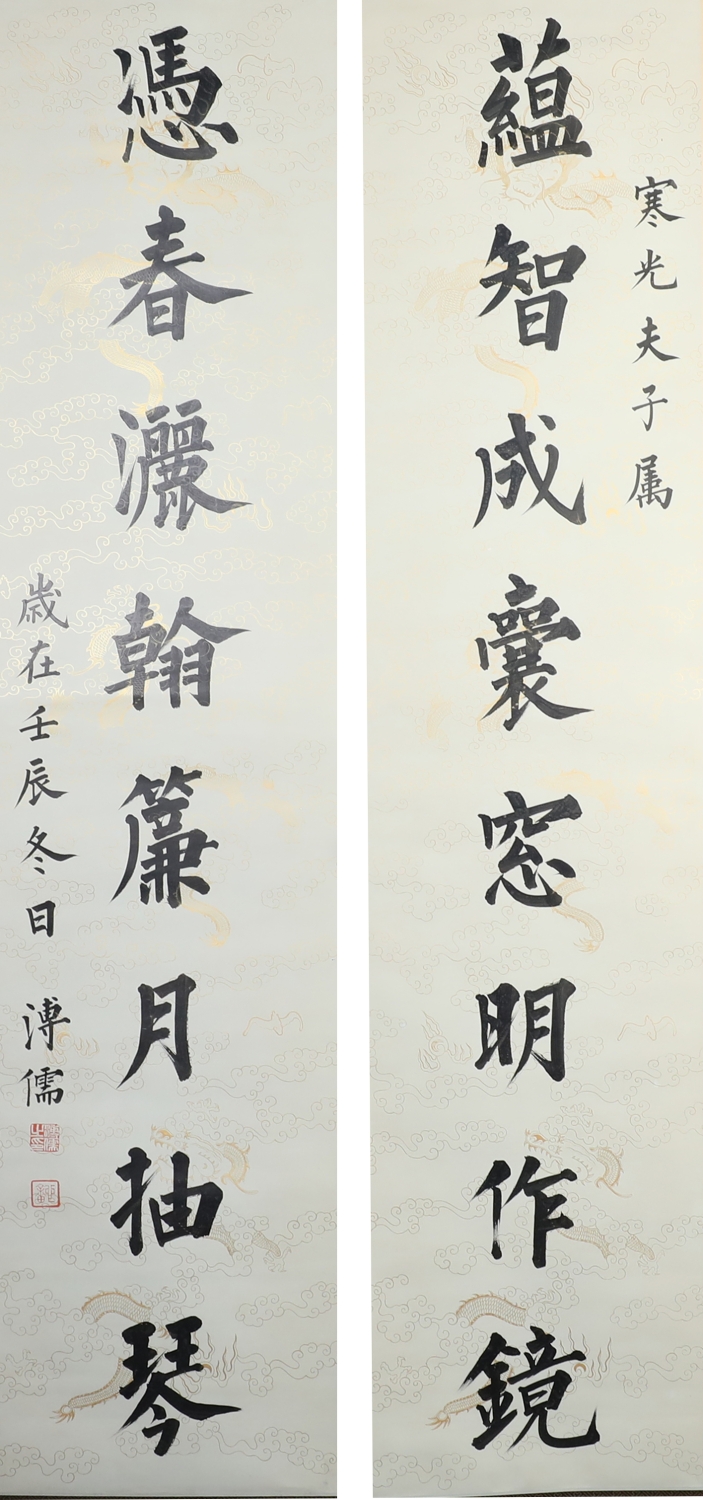 寒光夫子属
蘊智成囊窓明作鏡
憑春灑翰簾月抽琴
歲在壬辰冬日
溥儒